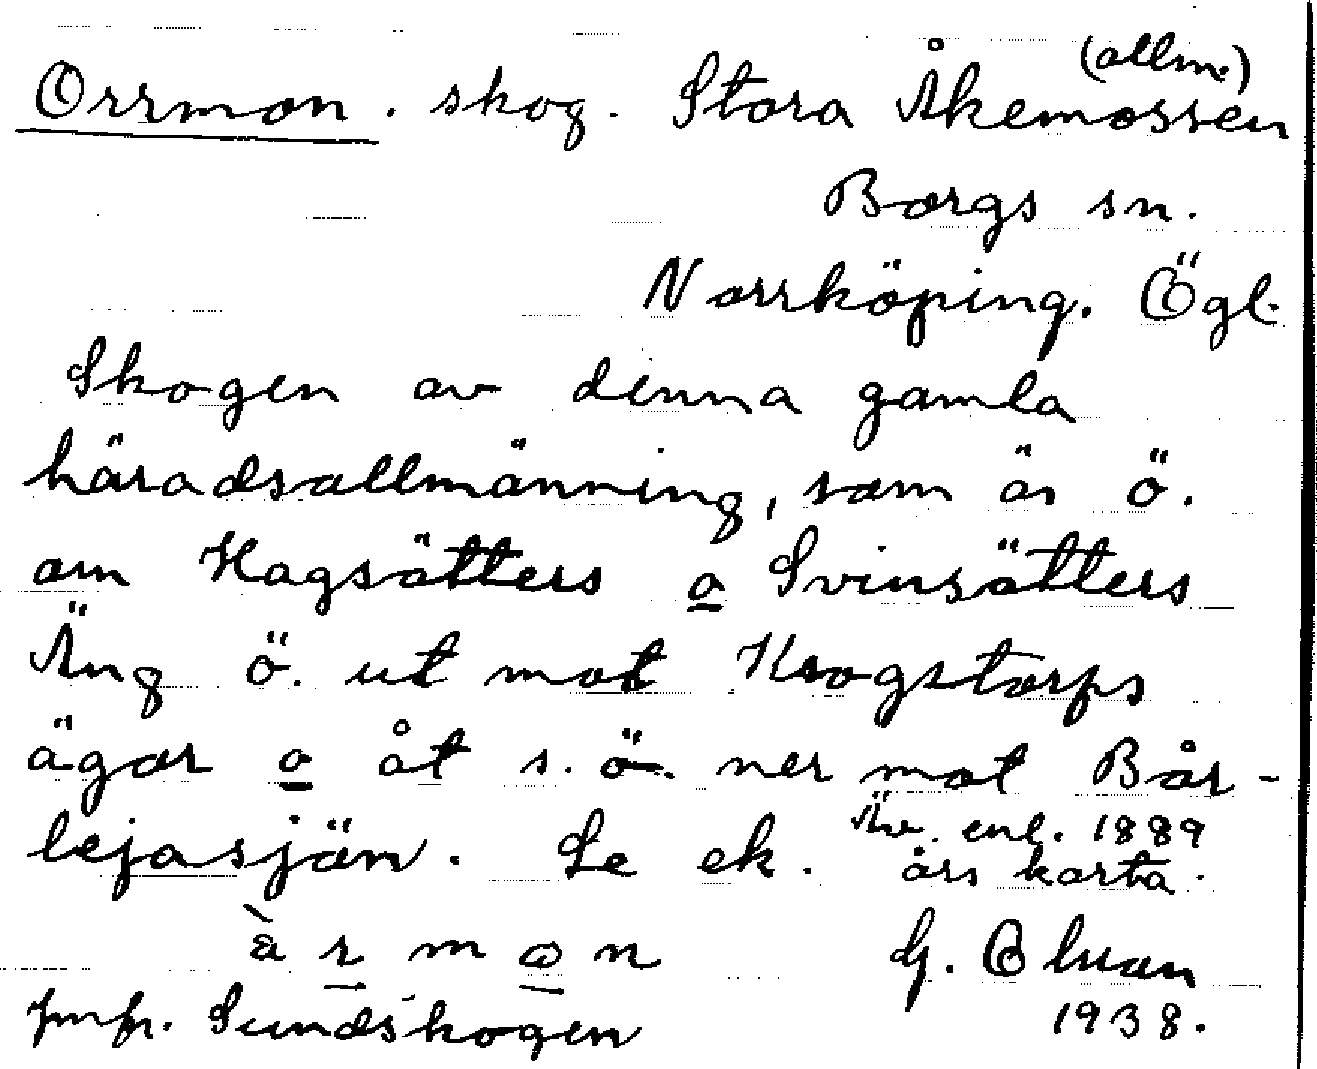 Orrmon. skog. Stora Åkemossen (allm.)
Borgs sn.
Norrköping. Ögl.
Skogen av denna gamla
häradsallmänning, som är ö.
om Hagsätters o Svinsätters
Äng ö. ut mot Krogstorps
ägor o åt s. ö. ner mot Bår-
lejasjön. Se ek. Äv. enl. 1889
års karta.
à r m o n G. Olson
Jmfr. Sundskogen 1938.